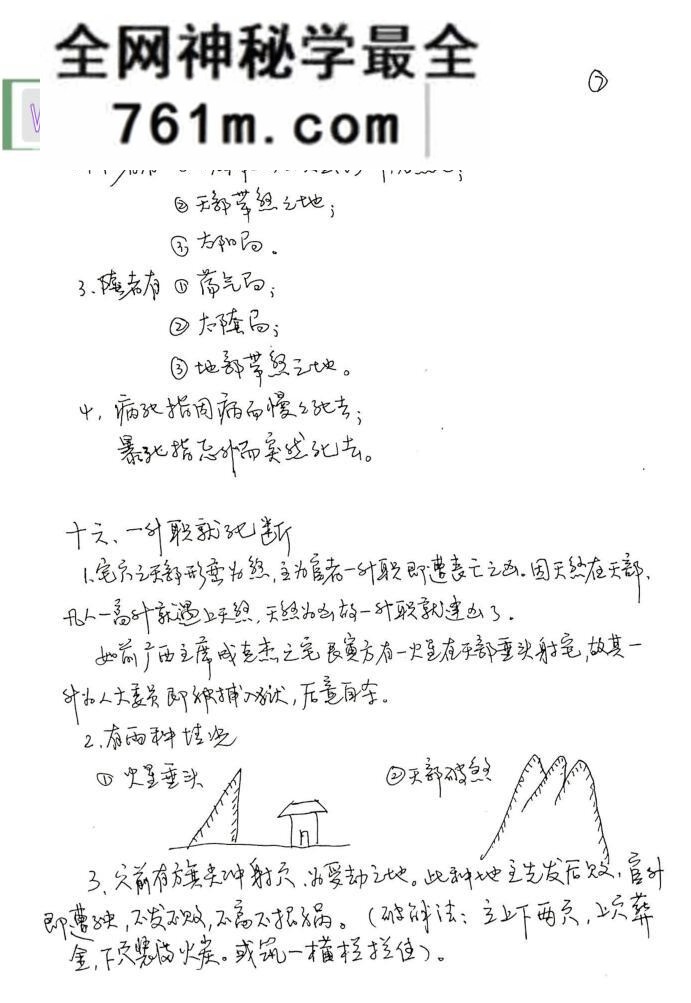 全网神秘学最全
761m.com
⑦
②天部带煞之地；
③太阳局。
3、阴者有 ①荡气局；
②太阴局；
③地部带煞之地。
4、病死指因病而慢慢死去；
暴死指意外而突然死去。
十六、一升职就死断
1、宅穴之天部形煞为煞，主为官者一升职即遭丧亡之凶。因天煞在天部，
凡人一高升就遇上天煞，天煞为凶故一升职就逢凶了。
如前广西主席成克杰之宅艮寅方有一火星在天部垂头射宅，故其一
升为人大委员即被捕入狱，后 。
2、有两种情况
①火星垂头
②天部破煞
3、穴前有旗尖冲射穴，为受劫之地。此种地主先发后败，官升
即遭殃，不发不败，不高不招祸。（破解法：立上下两穴，上穴葬
金，下穴装满火炭。或筑一横栏拦住）。